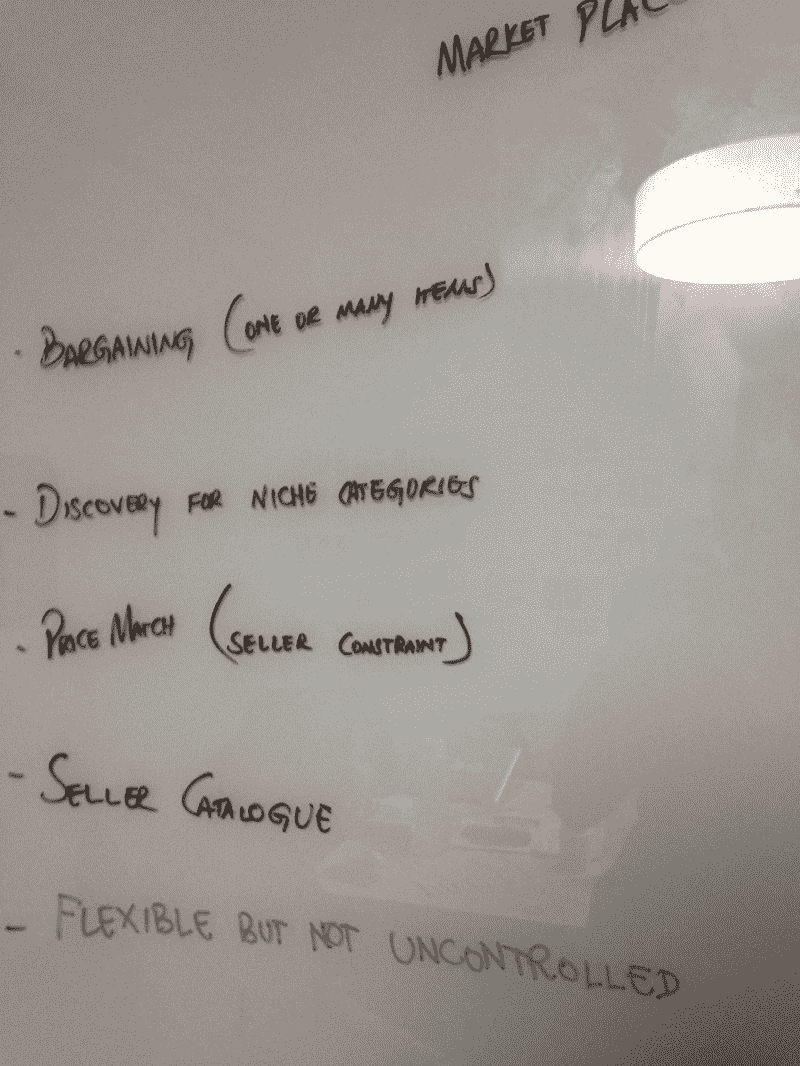 MARKET PLAC
· BARGAINING (ONE OR MANY ITEMS)
- DISCOVERY FOR NICHE CATEGORIES
- PRICE MATCH (SELLER CONSTRAINT)
- SELLER CATALOGUE
- FLEXIBLE BUT NOT UNCONTROLLED